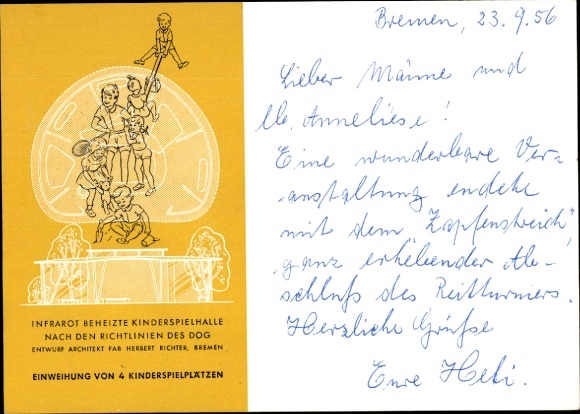 INFRAROT BEHEIZTE KINDERSPIELHALLE
NACH DEN RICHTLINIEN DES DOG
ENTWURF ARCHITEKT FAB HERBERT RICHTER, BREMEN
EINWEIHUNG VON 4 KINDERSPIELPLÄTZEN
Bremen, 23.9.56
Lieber Männe und
lb. Anneliese!
Eine wunderbare Ver-
anstaltung endete
mit dem "Zapfenstreich",
ganz erhebender Ab-
schluß des Reitturniers.
Herzliche Grüße
Eure Heti.